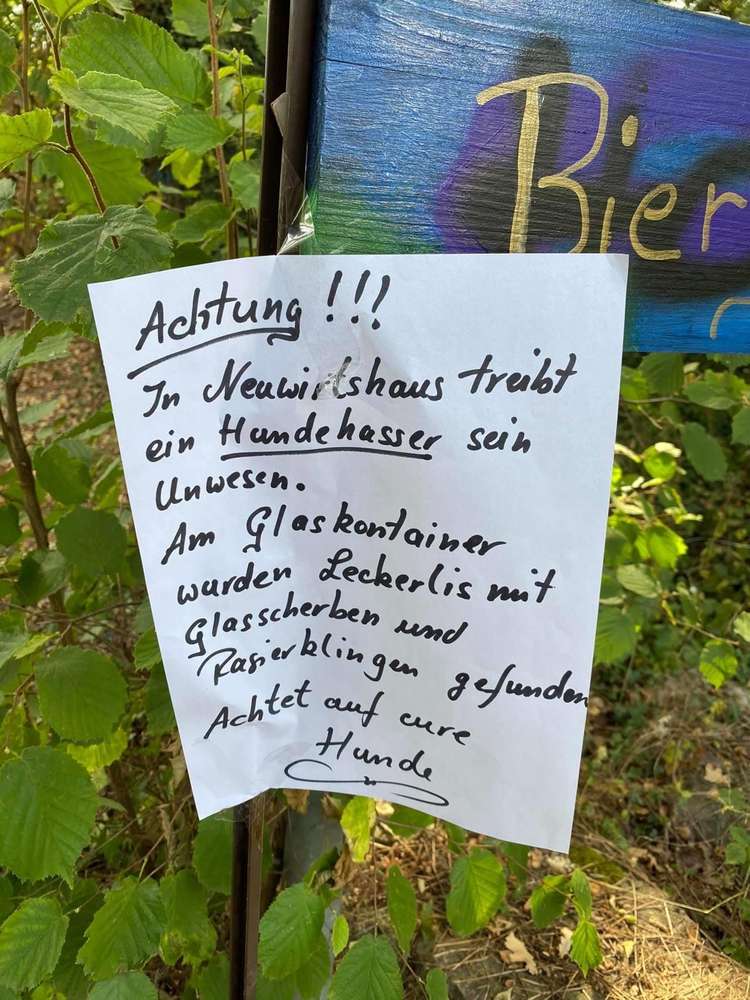 Bier
Achtung !!!
In Neuwirtshaus treibt
ein Hundehasser sein
Unwesen.
Am Glaskontainer
wurden Leckerlis mit
Glasscherben und
Rasierklingen gefunden
Achtet auf eure
Hunde